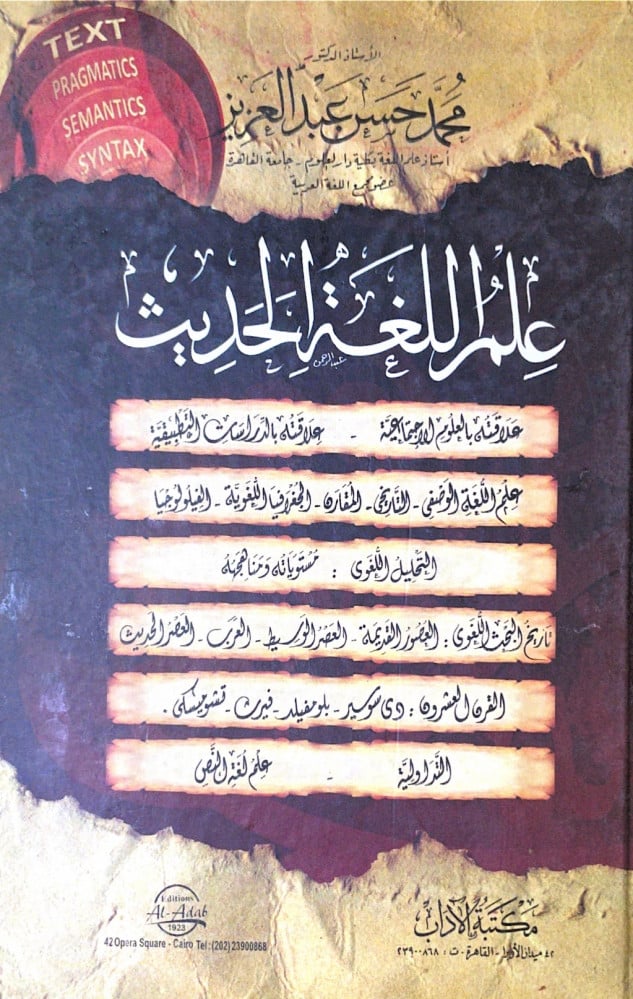 TEXT
PRAGMATICS
SEMANTICS
SYNTAX
الأستاذ الدكتور
محمد حسن عبد العزيز
أستاذ علم اللغة بكلية دار العلوم - جامعة القاهرة
عضو مجمع اللغة العربية
عِلمُ اللغَةِ الحَدِيث
عبد الرحمن
علاقته بالعلوم الاجتماعية - علاقته بالدراسات التطبيقية
علم اللغة الوصفى - التاريخى - المقارن - الجغرافيا اللغوية - الفيلولوجيا
التحليل اللغوى : مستوياته ومناهجه
تاريخ البحث اللغوى : العصور القديمة - العصر الوسيط - العرب - العصر الحديث
القرن العشرون : دى سوسير - بلومفيلد - فيرث - تشومسكى .
التداولية - علم لغة النص
Editions
Al-Adab
1923
42 Opera Square - Cairo Tel : (202) 23900868
مكتبة الآداب
٤٢ ميدان الأوبرا - القاهرة - ت : ٢٣٩٠٠٨٦٨